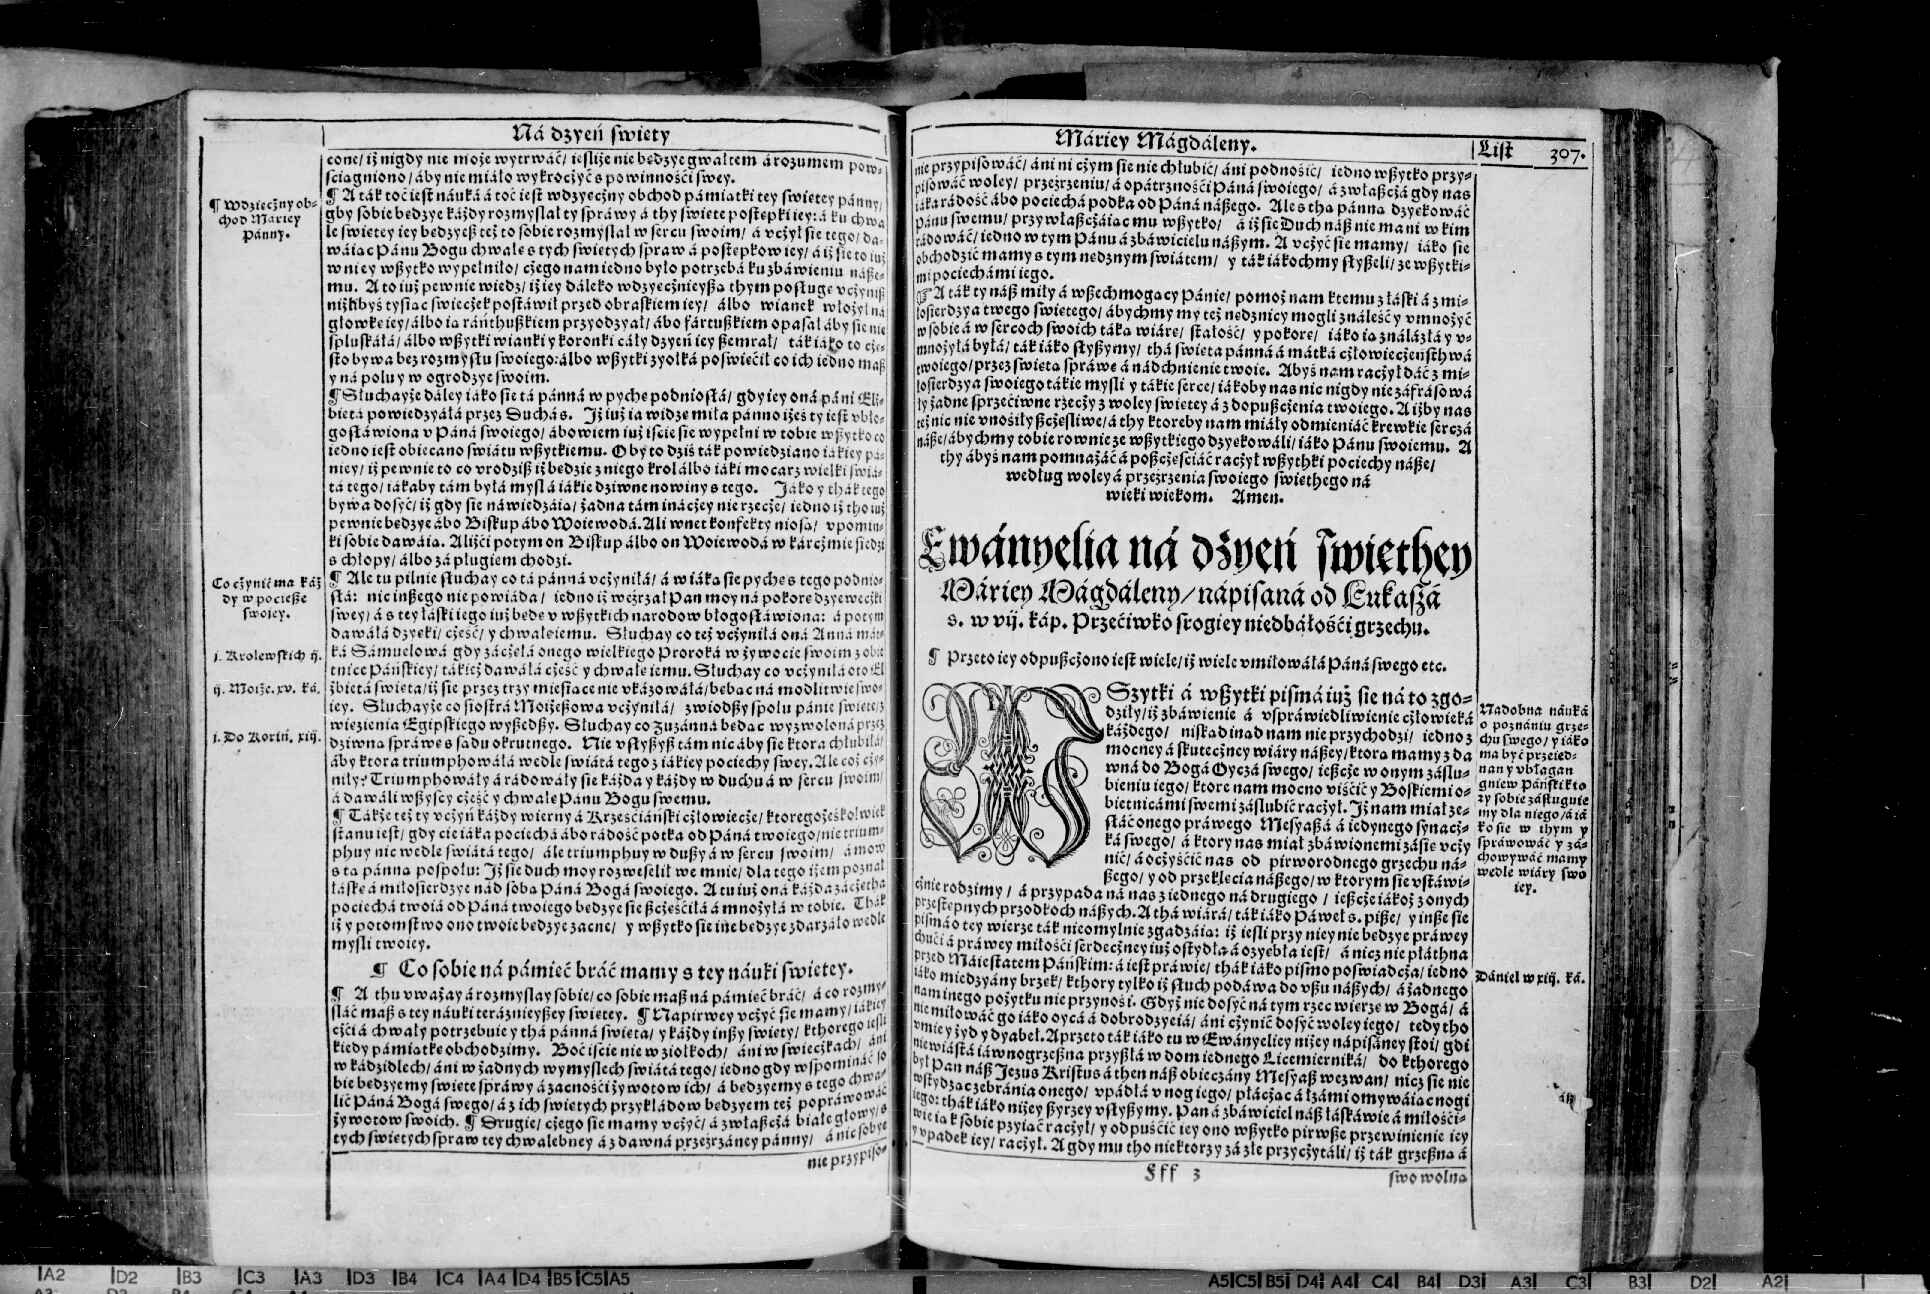 Ná dzyeń swięty
cone/ iż nigdy nie może wytrwáć/ iesliże nie będzye gwałtem á rozumem pow-
sciągniono/ áby nie miáło wykroczyć s powinnośći swey.
¶ A ták toć iest náuká á toć iest wdzyęczny obchod pámiątki tey swiętey pánny/
gdy sobie będzye káżdy rozmyslał ty spráwy á thy swięte postępki iey: á ku chwa
le swiętey iey będzyesz też to sobie rozmyslał w sercu swoim/ á vczył sie tego/ dá-
wáiąc Pánu Bogu chwałę s tych swiętych spraw á postępkow iey/ á iż sie to iuż
w niey wszytko wypełniło/ czego nam iedno było potrzebá ku zbáwieniu násze-
mu. A to iuż pewnie wiedz/ iż iey dáleko wdzyęcznieyszą thym posługę vczynisz
niżlibyś tysiąc swieczek postáwił przed obraskiem iey/ álbo wianek włożył ná
głowkę iey/ álbo ią ráńthuszkiem przyodzyał/ ábo fártuszkiem opasał áby sie nie
spluskáłá/ álbo wszytki wianki y koronki cáły dzyeń iey szemrał/ ták iáko to czę-
sto bywa bez rozmysłu swoiego: álbo wszytki zyołká poswięcił co ich iedno masz
y ná polu y w ogrodzye swoim.
¶ Słuchayże dáley iáko sie tá pánná w pychę podniosłá/ gdy iey oná páni Elż-
bietá powiedzyáłá przez Duchá s. Iż iuż ia widzę miła pánno iżeś ty iest vbło-
gosłáwiona v Páná swoiego/ ábowiem iuż iście sie wypełni w tobie wszytko co
iedno iest obiecano swiátu wszytkiemu. O by to dziś ták powiedziano iákiey pá-
niey/ iż pewnie to co vrodzisz iż będzie z niego krol álbo iáki mocarz wielki swiá-
tá tego/ iákaby tám byłá mysl á iákie dziwne nowiny s tego. Iáko y thák tego
bywa dosyć/ iż gdy sie náwiedzáią/ żadna tám ináczey nie rzecze/ iedno iż tho iuż
pewnie będzye ábo Biskup ábo Woiewodá. Ali wnet konfekty niosą/ vpomin-
ki sobie dawáią. Aliżći potym on Biskup álbo on Woiewodá w kárczmie siedzi
s chłopy/ álbo zá pługiem chodzi.
¶ Ale tu pilnie słuchay co tá pánná vczyniłá/ á w iáką sie pychę s tego podnio-
słá: nic inszego nie powiáda/ iedno iż weźrzał Pan moy ná pokorę dzyeweczki
swey/ á s tey łáski iego iuż będę v wszytkich narodow błogosłáwiona: á potym
dawáłá dzyęki/ cześć/ y chwałę iemu. Słuchay co też vczyniłá oná Anná mát-
ká Sámuelowá gdy záczęłá onego wielkiego Proroká w żywocie swoim z obie
tnice Páńskiey/ tákież dawáłá cześć y chwałę iemu. Słuchay co vczyniłá oto El
żbietá swięta/ iż sie przez trzy miesiące nie vkázowáłá/ będąc ná modlitwie swo-
iey. Słuchayże co siostrá Moiżeszowá vczyniłá/ zwiodszy społu pánie swięte/ z
więzienia Egipskiego wyszedszy. Słuchay co Zuzánná będąc wyzwolona przez
dziwną spráwę s sądu okrutnego. Nie vsłyszysz tám nic áby sie ktora chłubiłá/
áby ktora triumphowáłá wedle swiátá tego z iákiey pociechy swey. Ale coż czy-
niły? Triumphowáły á rádowáły sie káżda y káżdy w duchu á w sercu swoim/
á dawáli wszyscy cześć y chwałę Pánu Bogu swemu.
¶ Tákże też ty vczyń káżdy wierny á Krześćiáński człowiecze/ ktoregożeśkolwiek
stanu iest/ gdy cię iáka pociechá ábo rádość potka od Páná twoiego/ nie trium-
phuy nic wedle swiátá tego/ ále triumphuy w duszy á w sercu swoim/ á mow
s tą pánną pospołu: Iż sie duch moy rozweselił we mnie/ dla tego iżem poznał
łáskę á miłosierdzye nád sobą Páná Bogá swoiego. A tu iuż oná káżda záczętha
pociechá twoiá od Páná twoiego będzye sie szczęśćiłá á mnożyłá w tobie. Thák
iż y potomstwo ono twoie będzye zacne/ y wszytko sie inè będzye zdarzáło wedle
mysli twoiey.
¶ Co sobie ná pámięć bráć mamy s tey náuki swiętey.
¶ A thu vważay á rozmyslay sobie/ co sobie masz ná pámięć bráć/ á co rozmy-
sláć masz s tey náuki teráznieyszey swiętey. ¶ Napirwey vczyć sie mamy/ iákiey
czći á chwały potrzebuie y thá pánná swięta/ y káżdy inszy swięty/ kthorego iesli
kiedy pámiątkę obchodzimy. Boć iście nie w ziołkoch/ áni w swieczkach/ áni
w kádzidlech/ áni w żadnych wymyslech swiátá tego/ iedno gdy wspomináć so
bie będzyemy swięte spráwy á zacnośći żywotow ich/ á będzyemy s tego chwa-
lić Páná Bogá swego/ á z ich swiętych przykłádow będzyem też popráwowáć
żywotow swoich. ¶ Drugie/ czego sie mamy vczyć/ á zwłaszczá białe głowy/ s
tych swiętych spraw tey chwalebney á z dawná przeźrzáney pánny/ á nic sobye
nie przypiso-
¶ Wdzięczny ob-
chod Máriey
Pánny.
Co czynić ma káż
dy w pociesze
swoiey.
j. Krolewskich ij.
ij. Moiże. xv. ká.
j. Do Koriń. xiij.
Máriey Mágdáleny.
List 307.
nie przypisowáć/ áni ni czym sie nie chłubić/ áni podnośić/ iedno wszytko przy-
pisowáć woley/ przeźrzeniu/ á opátrznośći Páná swoiego/ á zwłaszczá gdy nas
iáka rádość ábo pociechá podka od Páná nászego. Ale s thą pánną dzyękowáć
Pánu swemu/ przywłaszczáiąc mu wszytko/ á iż sie Duch nász nie ma ni w kim
rádowáć/ iedno w tym Pánu á zbáwicielu nászym. A vczyć sie mamy/ iáko sie
obchodzić mamy s tym nędznym swiátem/ y ták iákochmy słyszeli/ ze wszytki-
mi pociechámi iego.
☞ A ták ty nász miły á wszechmogący Pánie/ pomoż nam k temu z łáski á z mi-
łosierdzya twego swiętego/ ábychmy my też nędznicy mogli ználeść y vmnożyć
w sobie á w sercoch swoich táką wiárę/ stałość/ y pokorę/ iáko ią ználázłá y v-
mnożyłá byłá/ ták iáko słyszymy/ thá swięta pánná á mátká człowieczeństhwá
twoiego/ przez swiętą spráwę á nádchnienie twoie. Abyś nam raczył dáć z mi-
łosierdzya swoiego tákie mysli y tákie serce/ iákoby nas nic nigdy nie záfrásowá
ły żadne sprzećiwne rzeczy z woley swiętey á z dopuszczenia twoiego. A iżby nas
też nic nie vnośiły szczęśliwe/ á thy ktoreby nam miáły odmieniáć krewkie sercá
násze/ ábychmy tobie rownie ze wszytkiego dzyękowáli/ iáko Pánu swoiemu. A
thy ábyś nam pomnażáć á poszczęśćiáć raczył wszythki pociechy násze/
według woley á przeźrzenia swoiego swięthego ná
wieki wiekom. Amen.
Ewányelia ná dzyeń swięthey
Máriey Mágdáleny/ nápisaná od Łukaszá
s. w vij. káp. Przećiwko srogiey niedbáłośći grzechu.
¶ Przeto iey odpuszczono iest wiele/ iż wiele vmiłowáłá Páná swego etc.
WSzytki á wszytki pismá iuż sie ná to zgo-
dziły/ iż zbáwienie á vspráwiedliwienie człowieká
káżdego/ niskad inad nam nie przychodzi/ iedno z
mocney á skuteczney wiáry nászey/ ktorą mamy z dá
wná do Bogá Oycá swego/ ieszcze w onym záslu-
bieniu iego/ ktore nam mocno viśćić y Boskiemi o-
bietnicámi swemi záslubić raczył. Iż nam miał ze-
słáć onego práwego Mesyaszá á iedynego synacz-
ká swego/ á ktory nas miał zbáwionemi zásię vczy
nić/ á oczyśćić nas od pirworodnego grzechu ná-
szego/ y od przeklęcia nászego/ w ktorym sie vstáwi-
cznie rodzimy/ á przypada ná nas z iednego ná drugiego/ ieszcze iákoż z onych
przestępnych przodkoch nászych. A thá wiárá/ ták iáko Páweł s. pisze/ y insze sie
pismá o tey wierze ták nieomylnie zgadzáią: iż iesli przy niey nie będzye práwey
chući á práwey miłośći serdeczney iuż ostydłá á ozyębłá iest/ á nicz nie płáthna
przed Máiestatem Páńskim: á iest práwie/ thák iáko pismo poswiadcza/ iedno
iáko miedzyány brzęk/ kthory tylko iż słuch podáwa do vszu nászych/ á żadnego
nam inego pożytku nie przynośi. Gdyż nie dosyć ná tym rzec wierzę w Bogá/ á
nie miłowáć go iáko oycá á dobrodzyeiá/ áni czynić dosyć woley iego/ tedy tho
vmie y żyd y dyabeł. A przeto ták iáko tu w Ewányeliey niżey nápisáney stoi/ gdi
niewiástá iáwnogrzeszna przyszłá w dom iednego Licemierniká/ do kthorego
był Pan nász Iezus Kristus á then nász obieczány Mesyasz wezwan/ nicz sie nie
wstydząc zebránia onego/ vpádłá v nog iego/ płácząc á łzámi omywáiąc nogi
iego: thák iáko niżey szyrzey vsłyszymy. Pan á zbáwiciel nász łáskáwie á miłośći-
wie ią k sobie przyiąć raczył/ y odpuśćić iey ono wszytko pirwsze przewinienie iey
y vpadek iey/ raczył. A gdy mu tho niektorzy zá złe przyczytáli/ iż ták grzeszna á
Fff 3
swowolna
Nadobna náuká
o poznániu grze-
chu swego/ y iáko
ma być przeied-
nan y vbłagan
gniew Páński kto
ry sobie zásługuie
my dla niego/ á iá
ko sie w thym y
spráwowáć y zá-
chowywáć mamy
wedle wiáry swo
iey.
Dániel w xiij. ká.